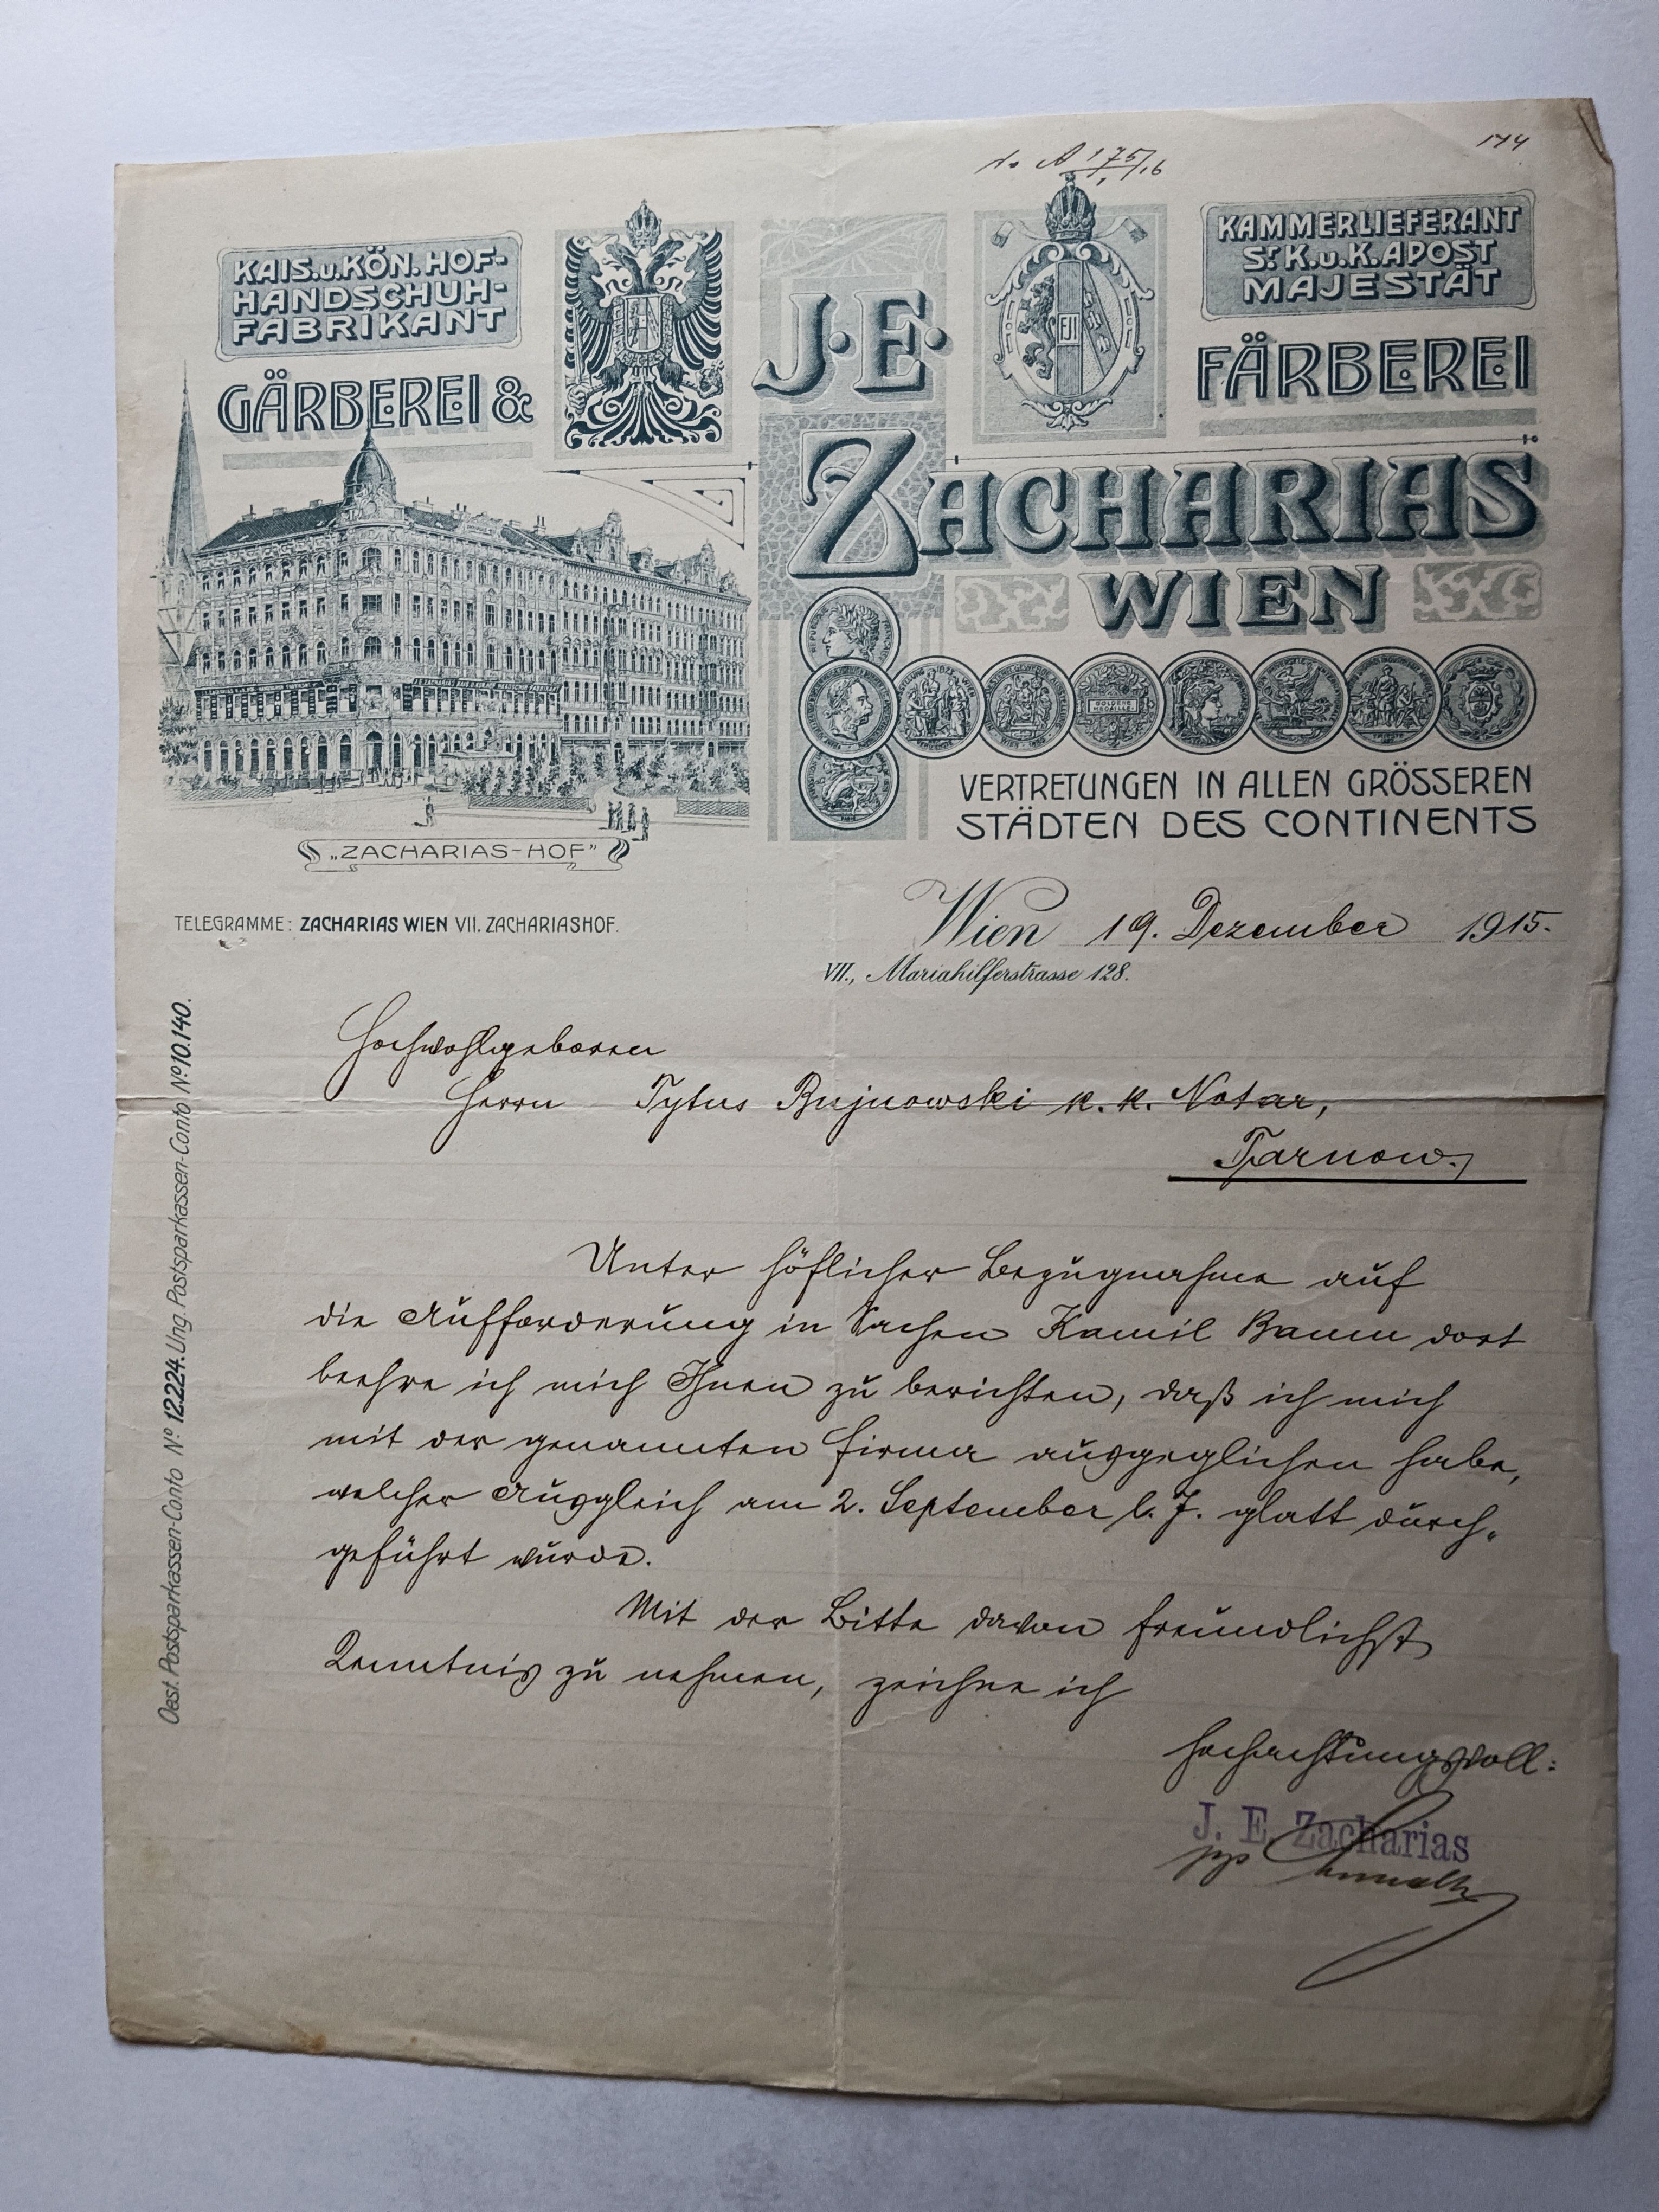 174
A 175/16
KAIS.u.KÖN.HOF-
HANDSCHUH-
FABRIKANT
GÄRBEREI &
J.E.
ZACHARIAS
WIEN
KAMMERLIEFERANT
Sr. K.u.K.APOST
MAJESTÄT
FÄRBEREI
VERTRETUNGEN IN ALLEN GRÖSSEREN
STÄDTEN DES CONTINENTS
„ZACHARIAS-HOF"
TELEGRAMME: ZACHARIAS WIEN VII. ZACHARIASHOF.
Wien 19. Dezember 1915.
VII., Mariahilferstrasse 128.
Oest. Postsparkassen-Conto No. 12224. Ung. Postsparkassen-Conto No. 10.140.
Hochwohlgeboren
Herrn Tytus Bujnowski k. k. Notar,
Tarnow.
Unter höflicher Bezugnahme auf
die Aufforderung in Sachen Kamil Baum dort
beehre ich mich Ihnen zu berichten, daß ich mich
mit der genannten Firma ausgeglichen habe,
welcher Ausgleich am 2. September l. J. glatt durch-
geführt wurde.
Mit der Bitte davon freundlichst
Kenntnis zu nehmen, zeichne ich
hochachtungsvoll:
J. E. Zacharias
pp